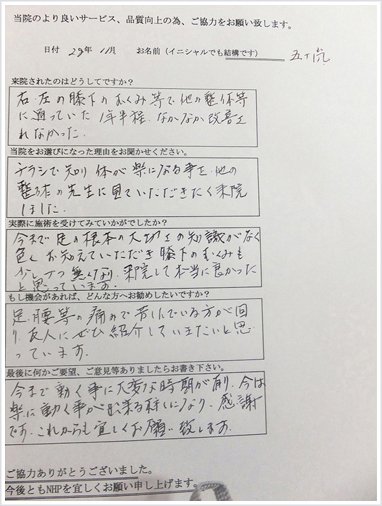 当院のより良いサービス、品質向上の為、ご協力をお願い致します。
日付 29年 11月 お名前（イニシャルでも結構です）
来院されたのはどうしてですか？
右・左の膝下のむくみ等で他の整体等
に通っていた 1年半程 なかなか改善さ
れなかった.
当院をお選びになった理由をお聞かせください。
チラシで知り 体が楽になる事を. 他の
整体の先生に見ていただきたく来院
しました.
実際に施術を受けてみていかがでしたか？
今まで足の根本の大切さの知識がなく
色々お知えていただき膝下のむくみも
少しづつ無くなり 来院して本当に良かった
と思っています.
もし機会があれば、どんな方へお勧めしたいですか？
足.腰等の痛みで苦しんでいる方が回
り.友人にぜひ紹介していきたいと思
っています.
最後に何かご要望、ご意見等ありましたらお書き下さい。
今まで動く事に大変な時期が有り.今は
楽に動く事が出来る様になり.感謝
です.これからも宜しくお願い致します.
ご協力ありがとうございました。
今後ともNHPを宜しくお願い申し上げます。